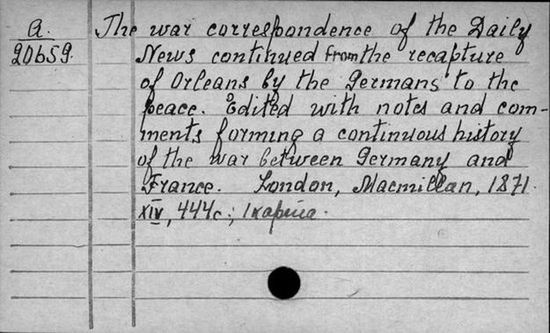 A.
20659.
The war correspondence of the Daily
News continued from the recapture
of Orleans by the Germans to the
peace. Edited with notes and com-
ments forming a continuous history
of the war between Germany and
France. London, Macmillan, 1871.
XIV, 444c.; 1 карта.